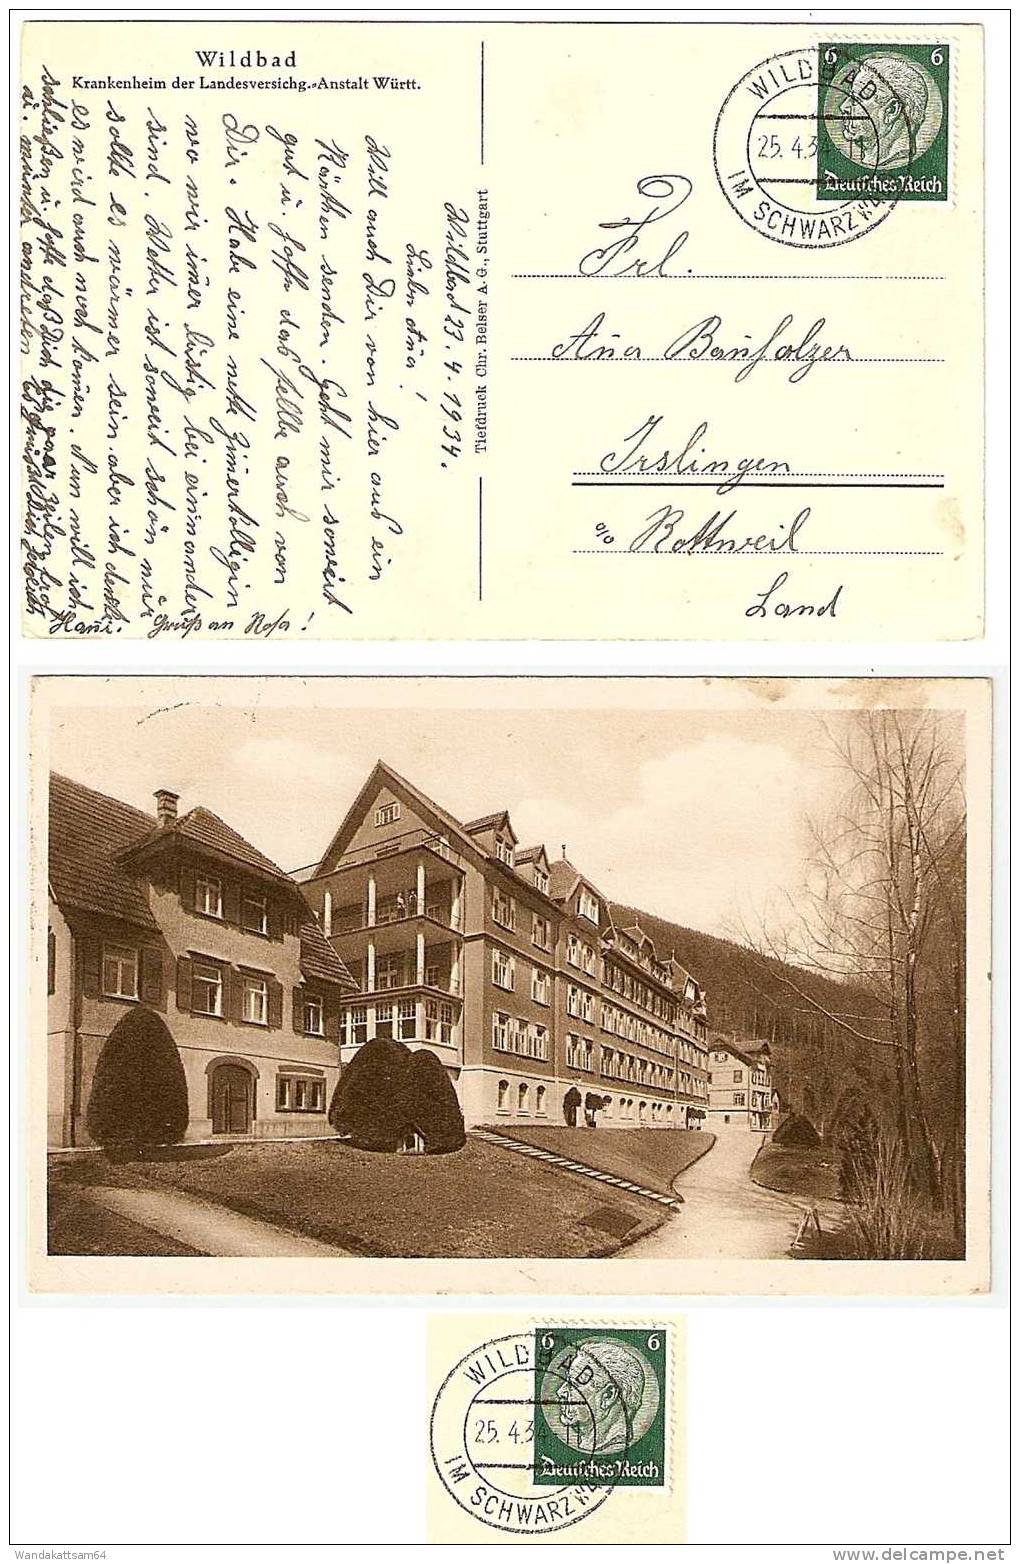 Wildbad
Krankenheim der Landesversichg.-Anstalt Württ.
Wildbad 23.4.1934.
Will auch Dir von hier aus ein
Kärtchen senden. Geht mir soweit
gut u. hoffe dasselbe auch von
Dir. Habe eine nette Zim̅erkollegin
wo wir im̅er lustig bei einander
sind. Wetter ist soweit schön nur
sollte es wärmer sein aber ich denke
es wird auch noch kom̅en. Nun will ich
schließen u. hoffe daß Dich die paar Zeilen
u. munter antreffen
Gruß an Rosa!
Tiefdruck Chr. Belser A.G., Stuttgart
WILDBAD
25.4.34 11
IM SCHWARZW
6 6
Deutsches Reich
Frl.
Irslingen
o/o Rottweil
Land
WILDBAD
25.4.34 11
IM SCHWARZW
6 6
Deutsches Reich
Wandakattsam64
www.delcampe.net